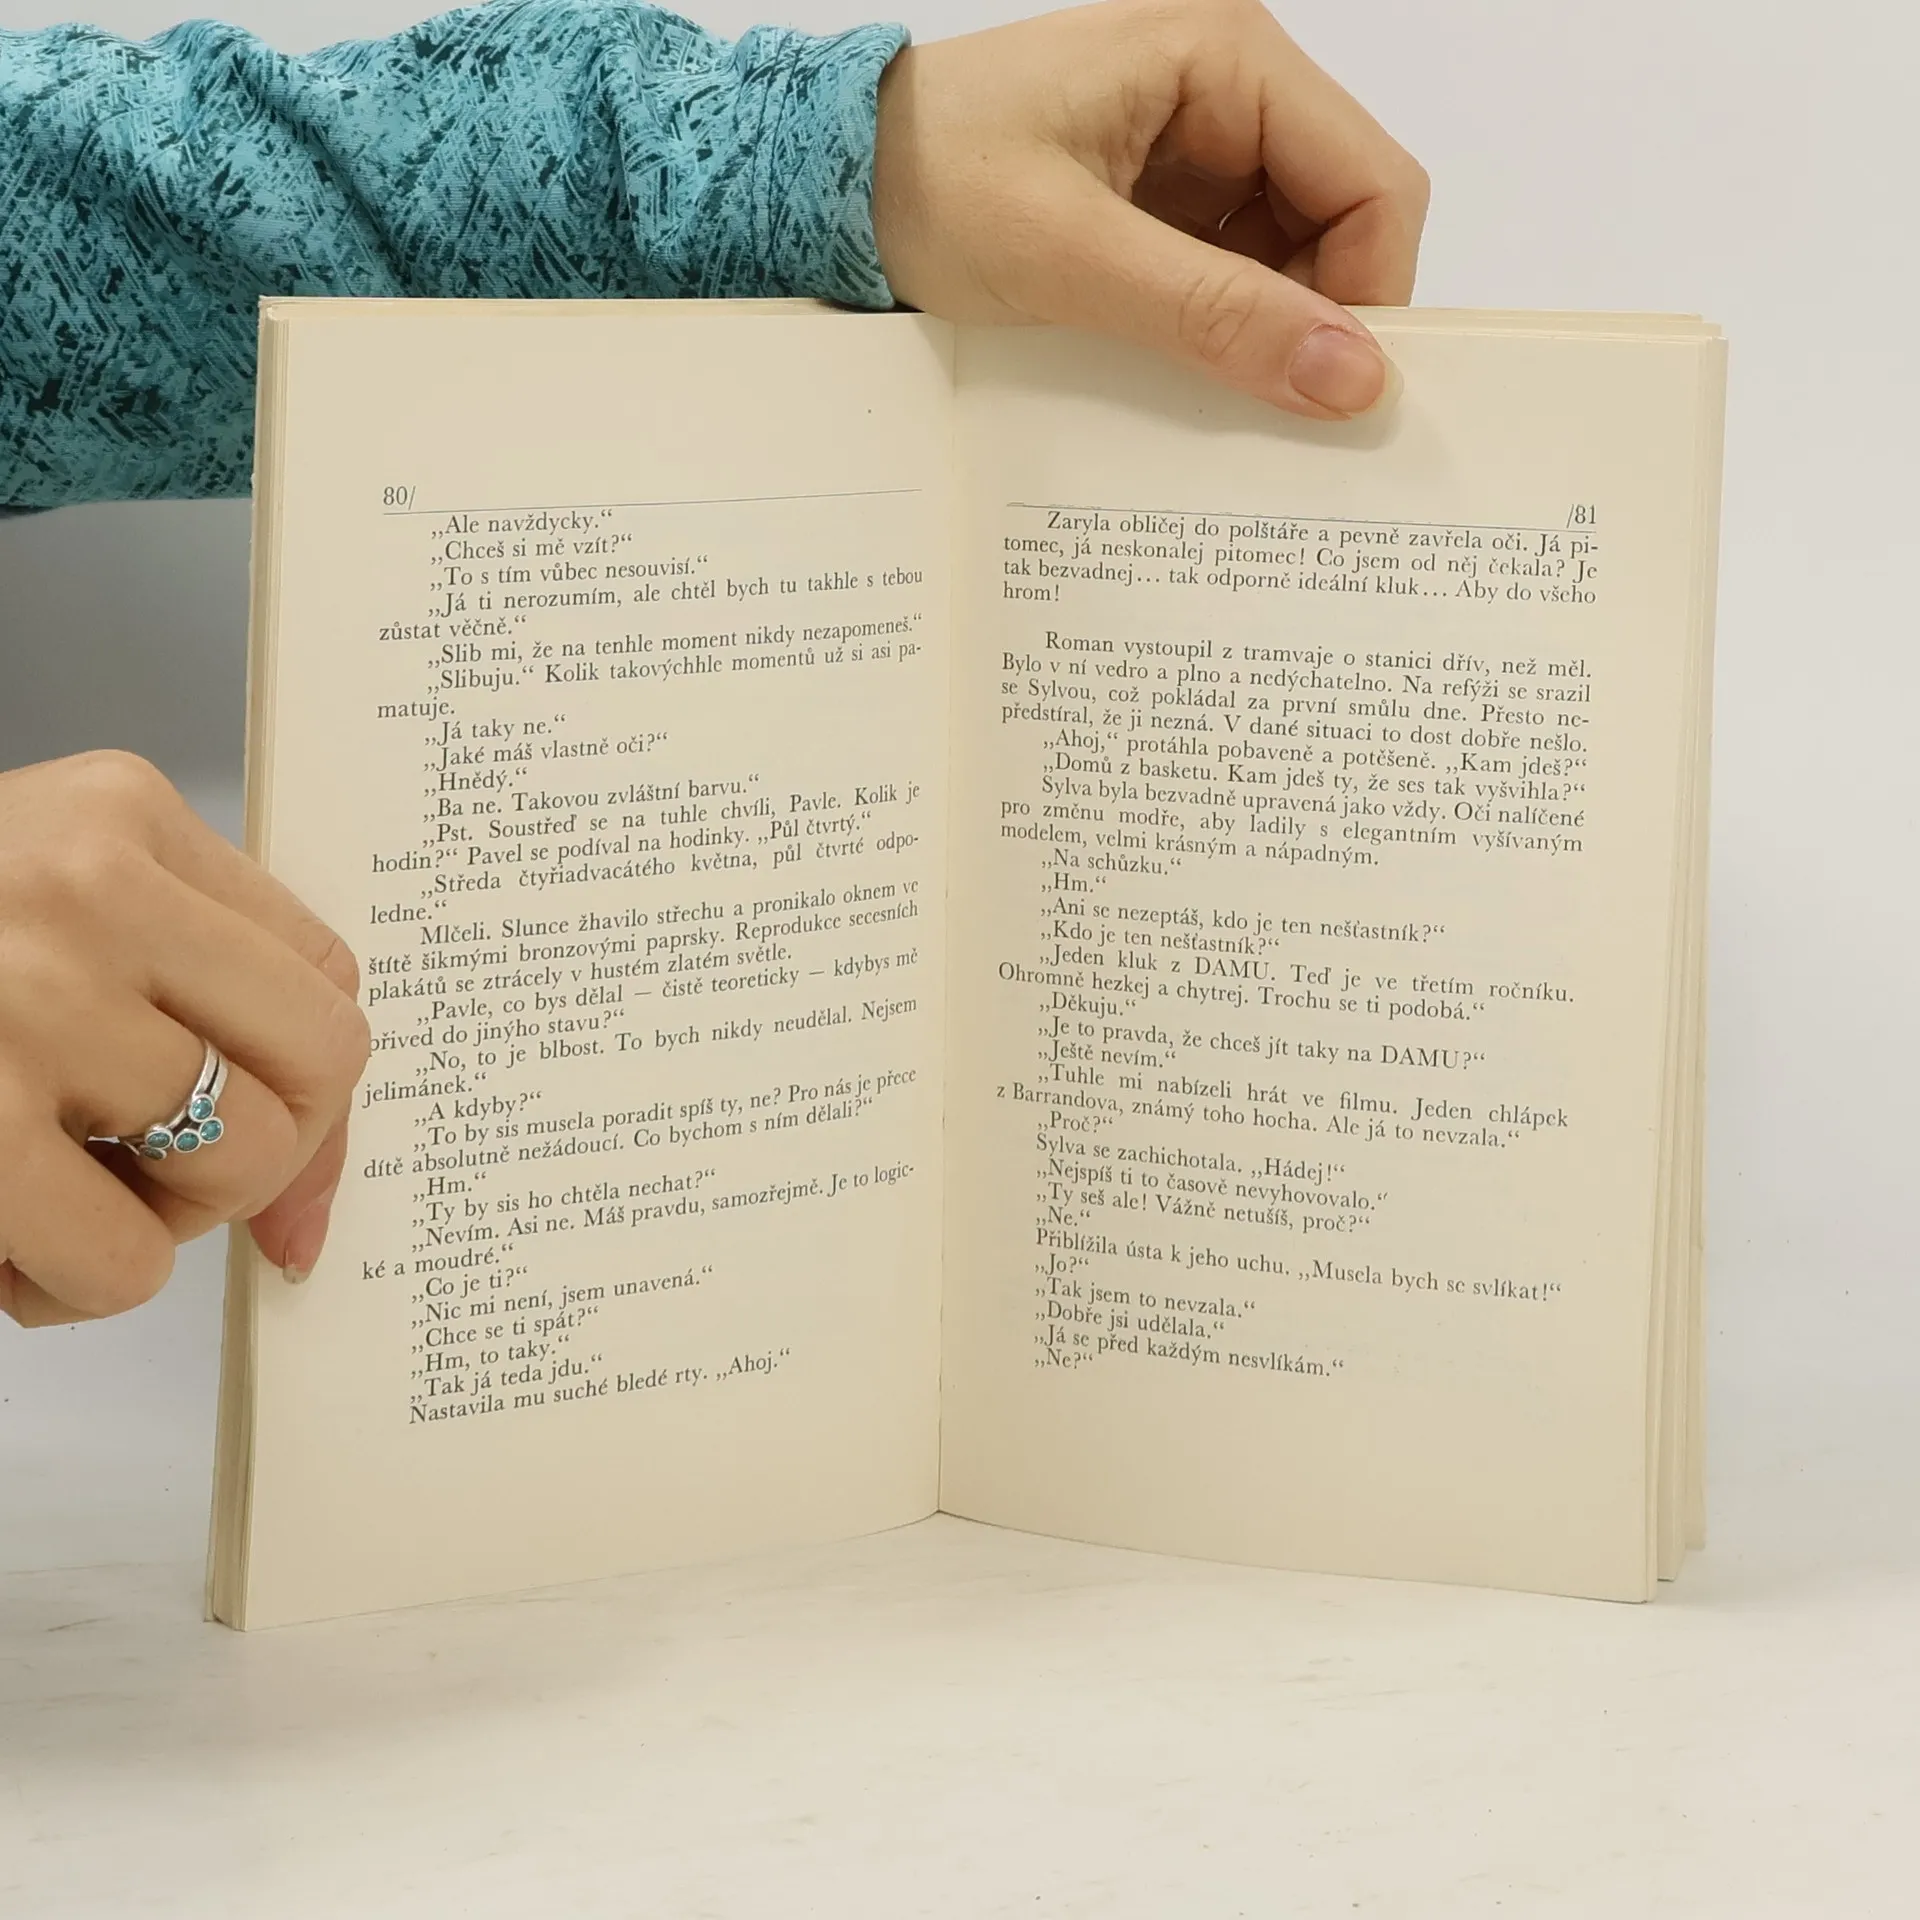 80/
„Ale navždycky.“
„Chceš si mě vzít?“
„To s tím vůbec nesouvisí.“
„Já ti nerozumím, ale chtěl bych tu takhle s tebou
zůstat věčně.“
„Slib mi, že na tenhle moment nikdy nezapomeneš.“
„Slibuju.“ Kolik takovýchhle momentů už si asi pa-
matuje.
„Já taky ne.“
„Jaké máš vlastně oči?“
„Hnědý.“
„Ba ne. Takovou zvláštní barvu.“
„Pst. Soustřeď se na tuhle chvíli, Pavle. Kolik je
hodin?“ Pavel se podíval na hodinky. „Půl čtvrtý.“
„Středa čtyřiadvacátého května, půl čtvrté odpo-
ledne.“
Mlčeli. Slunce žhavilo střechu a pronikalo oknem ve
štítě šikmými bronzovými paprsky. Reprodukce secesních
plakátů se ztrácely v hustém zlatém světle.
„Pavle, co bys dělal — čistě teoreticky — kdybys mě
přived do jinýho stavu?“
„No, to je blbost. To bych nikdy neudělal. Nejsem
jelimánek.“
„A kdyby?“
„To by sis musela poradit spíš ty, ne? Pro nás je přece
dítě absolutně nežádoucí. Co bychom s ním dělali?“
„Hm.“
„Ty by sis ho chtěla nechat?“
„Nevím. Asi ne. Máš pravdu, samozřejmě. Je to logic-
ké a moudré.“
„Co je ti?“
„Nic mi není, jsem unavená.“
„Chce se ti spát?“
„Hm, to taky.“
„Tak já teda jdu.“
Nastavila mu suché bledé rty. „Ahoj.“
/81
Zaryla obličej do polštáře a pevně zavřela oči. Já pi-
tomec, já neskonalej pitomec! Co jsem od něj čekala? Je
tak bezvadnej... tak odporně ideální kluk... Aby do všeho
hrom!
Roman vystoupil z tramvaje o stanici dřív, než měl.
Bylo v ní vedro a plno a nedýchatelno. Na refýži se srazil
se Sylvou, což pokládal za první smůlu dne. Přesto ne-
předstíral, že ji nezná. V dané situaci to dost dobře nešlo.
„Ahoj,“ protáhla pobaveně a potěšeně. „Kam jdeš?“
„Domů z basketu. Kam jdeš ty, že ses tak vyšvihla?“
Sylva byla bezvadně upravená jako vždy. Oči nalíčené
pro změnu modře, aby ladily s elegantním vyšívaným
modelem, velmi krásným a nápadným.
„Na schůzku.“
„Hm.“
„Ani se nezeptáš, kdo je ten nešťastník?“
„Kdo je ten nešťastník?“
„Jeden kluk z DAMU. Teď je ve třetím ročníku.
Ohromně hezkej a chytrej. Trochu se ti podobá.“
„Děkuju.“
„Je to pravda, že chceš jít taky na DAMU?“
„Ještě nevím.“
„Tuhle mi nabízeli hrát ve filmu. Jeden chlápek
z Barrandova, známý toho hocha. Ale já to nevzala.“
„Proč?“
Sylva se zachichotala. „Hádej!“
„Nejspíš ti to časově nevyhovovalo.“
„Ty seš ale! Vážně netušíš, proč?“
„Ne.“
Přiblížila ústa k jeho uchu. „Musela bych se svlíkat!“
„Jo?“
„Tak jsem to nevzala.“
„Dobře jsi udělala.“
„Já se před každým nesvlíkám.“
„Ne?“